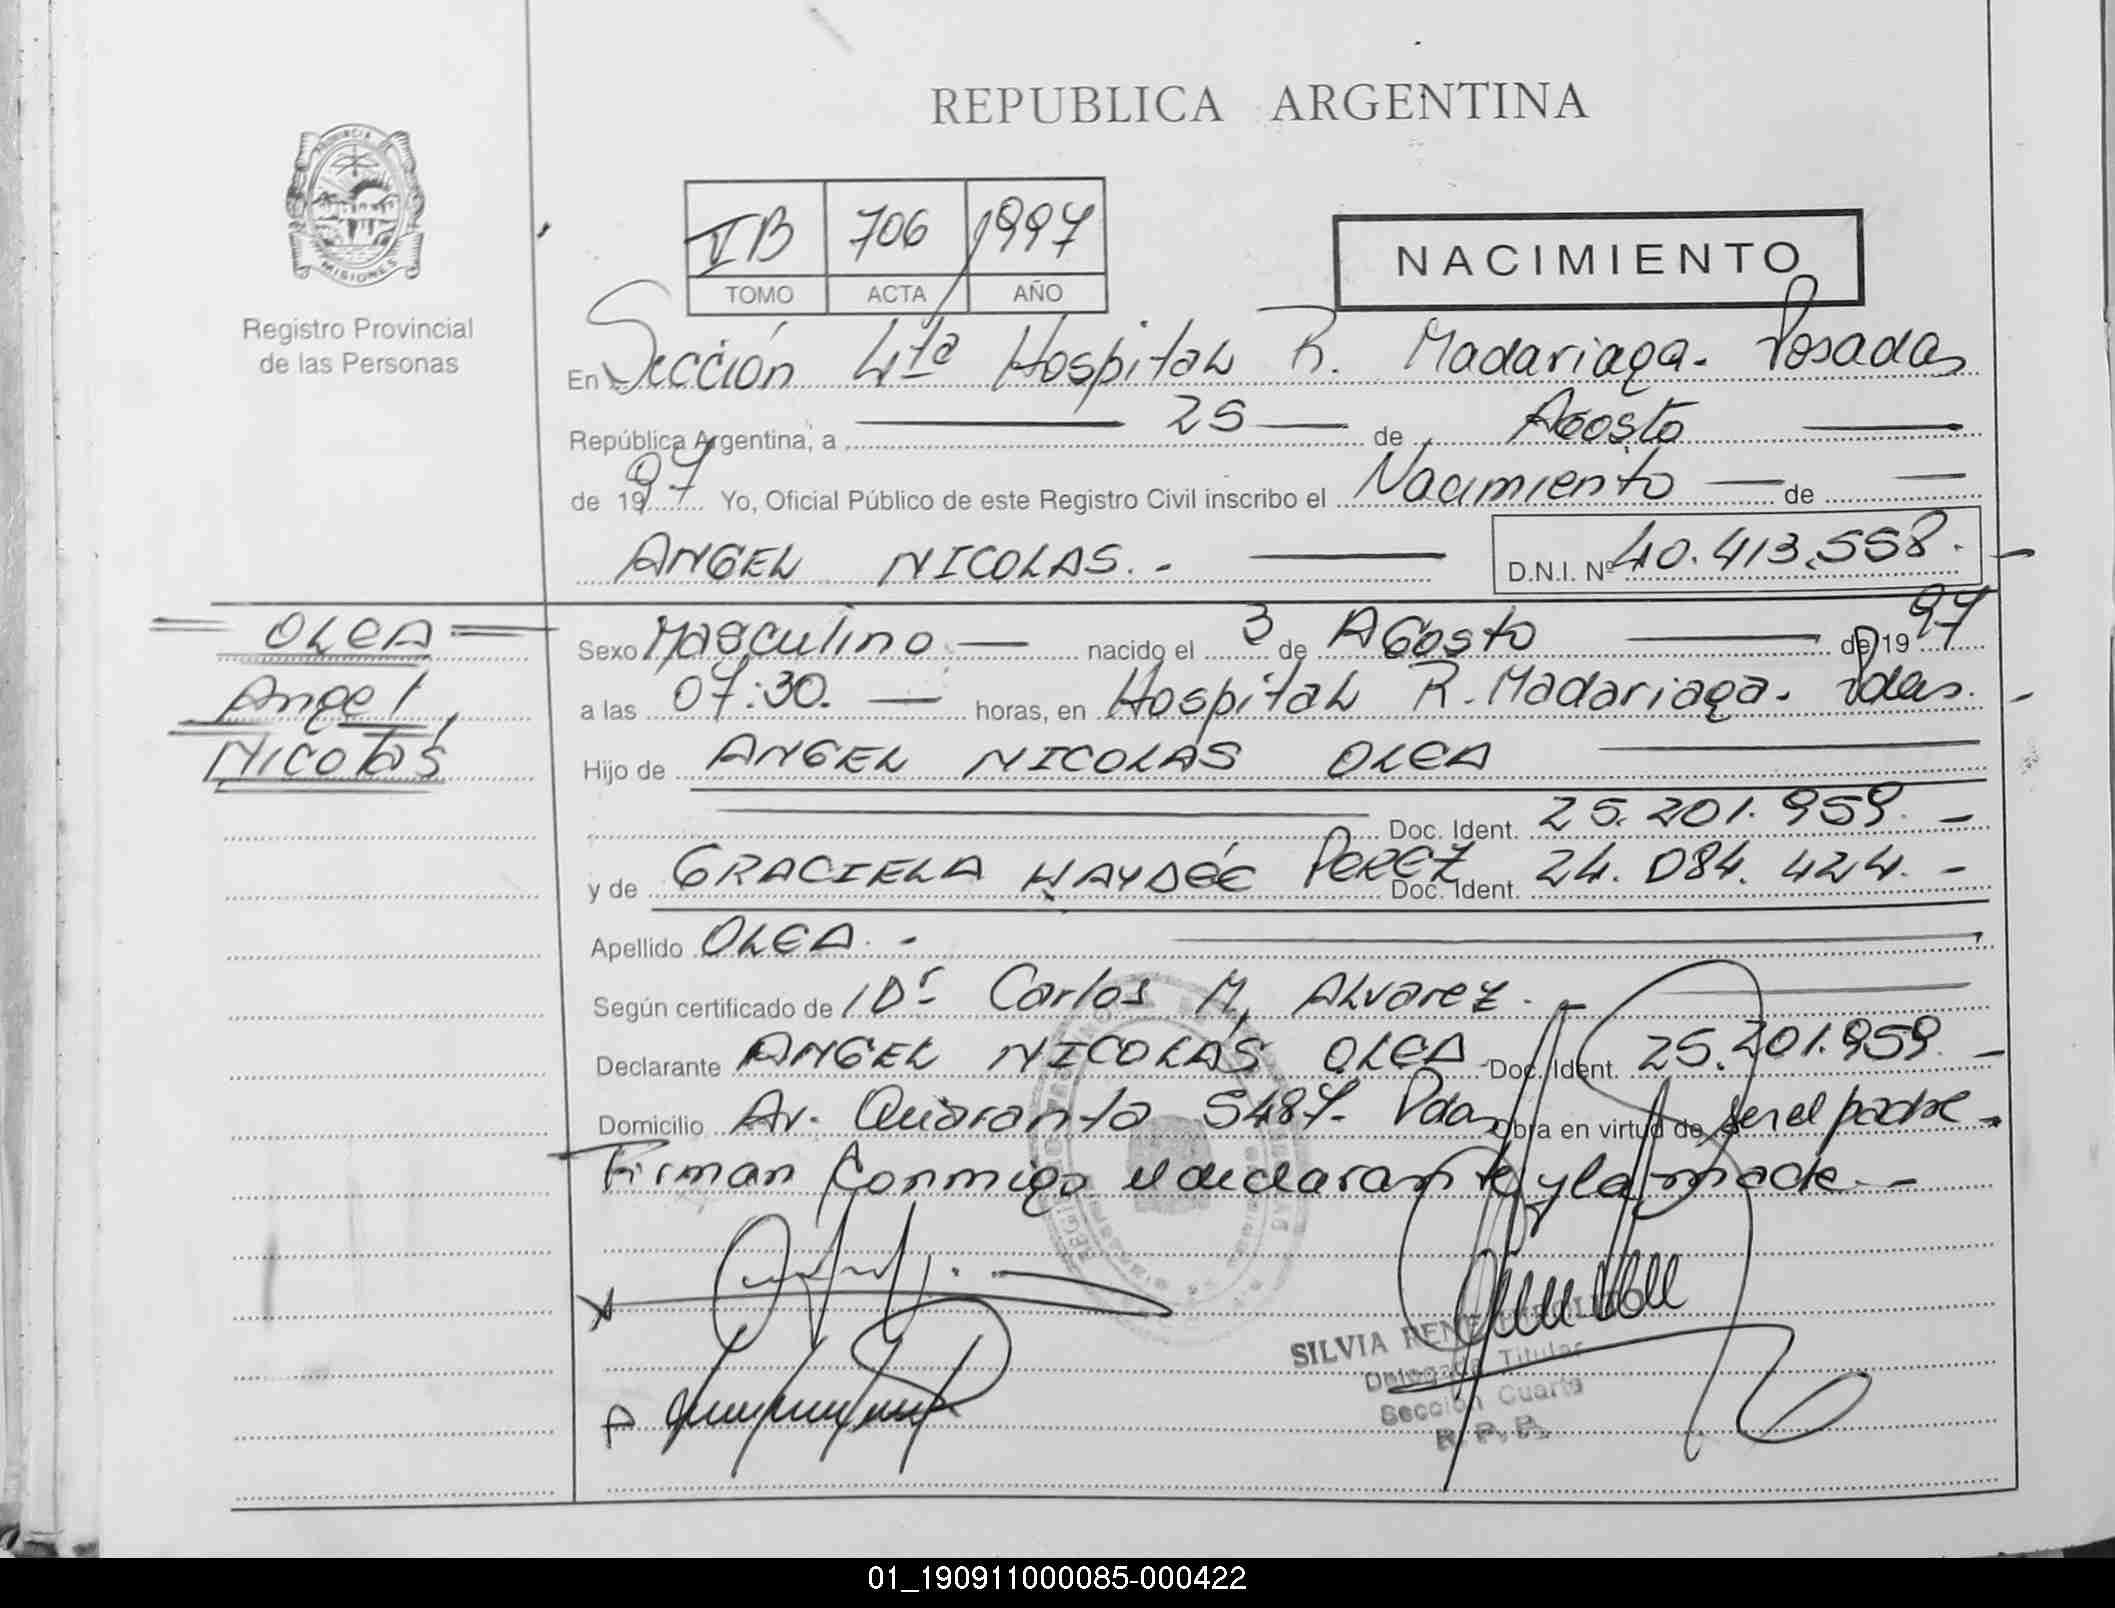 REPUBLICA ARGENTINA
PROVINCIA DE MISIONES
Registro Provincial
de las Personas
IB 706 1997
TOMO ACTA AÑO
NACIMIENTO
En Sección 4ta Hospital R. Madariaga. Posadas
República Argentina, a 25 de Agosto
de 1997 Yo, Oficial Público de este Registro Civil inscribo el Nacimiento de
ANGEL NICOLAS.- D.N.I. Nº 40.413.558.-
OLEA
Angel
Nicolás
Sexo Masculino nacido el 3 de Agosto de 1997
a las 07:30. horas, en Hospital R. Madariaga. Pdas.-
Hijo de ANGEL NICOLAS OLEA
Doc. Ident. 25.201.959.-
y de GRACIELA HAYDÉE PEREZ Doc. Ident. 24.084.424.-
Apellido OLEA.-
Según certificado de Dr Carlos M. Alvarez.-
Declarante ANGEL NICOLÁS OLEA Doc. Ident. 25.201.959.-
Domicilio Av. Quaranta 5487- Pdas Obra en virtud de ser el padre.
Firman conmigo el declarante y la madre.-
SILVIA RENE HIPOLITO
Delegada Titular
Sección Cuarta
R. P. P.
01_190911000085-000422